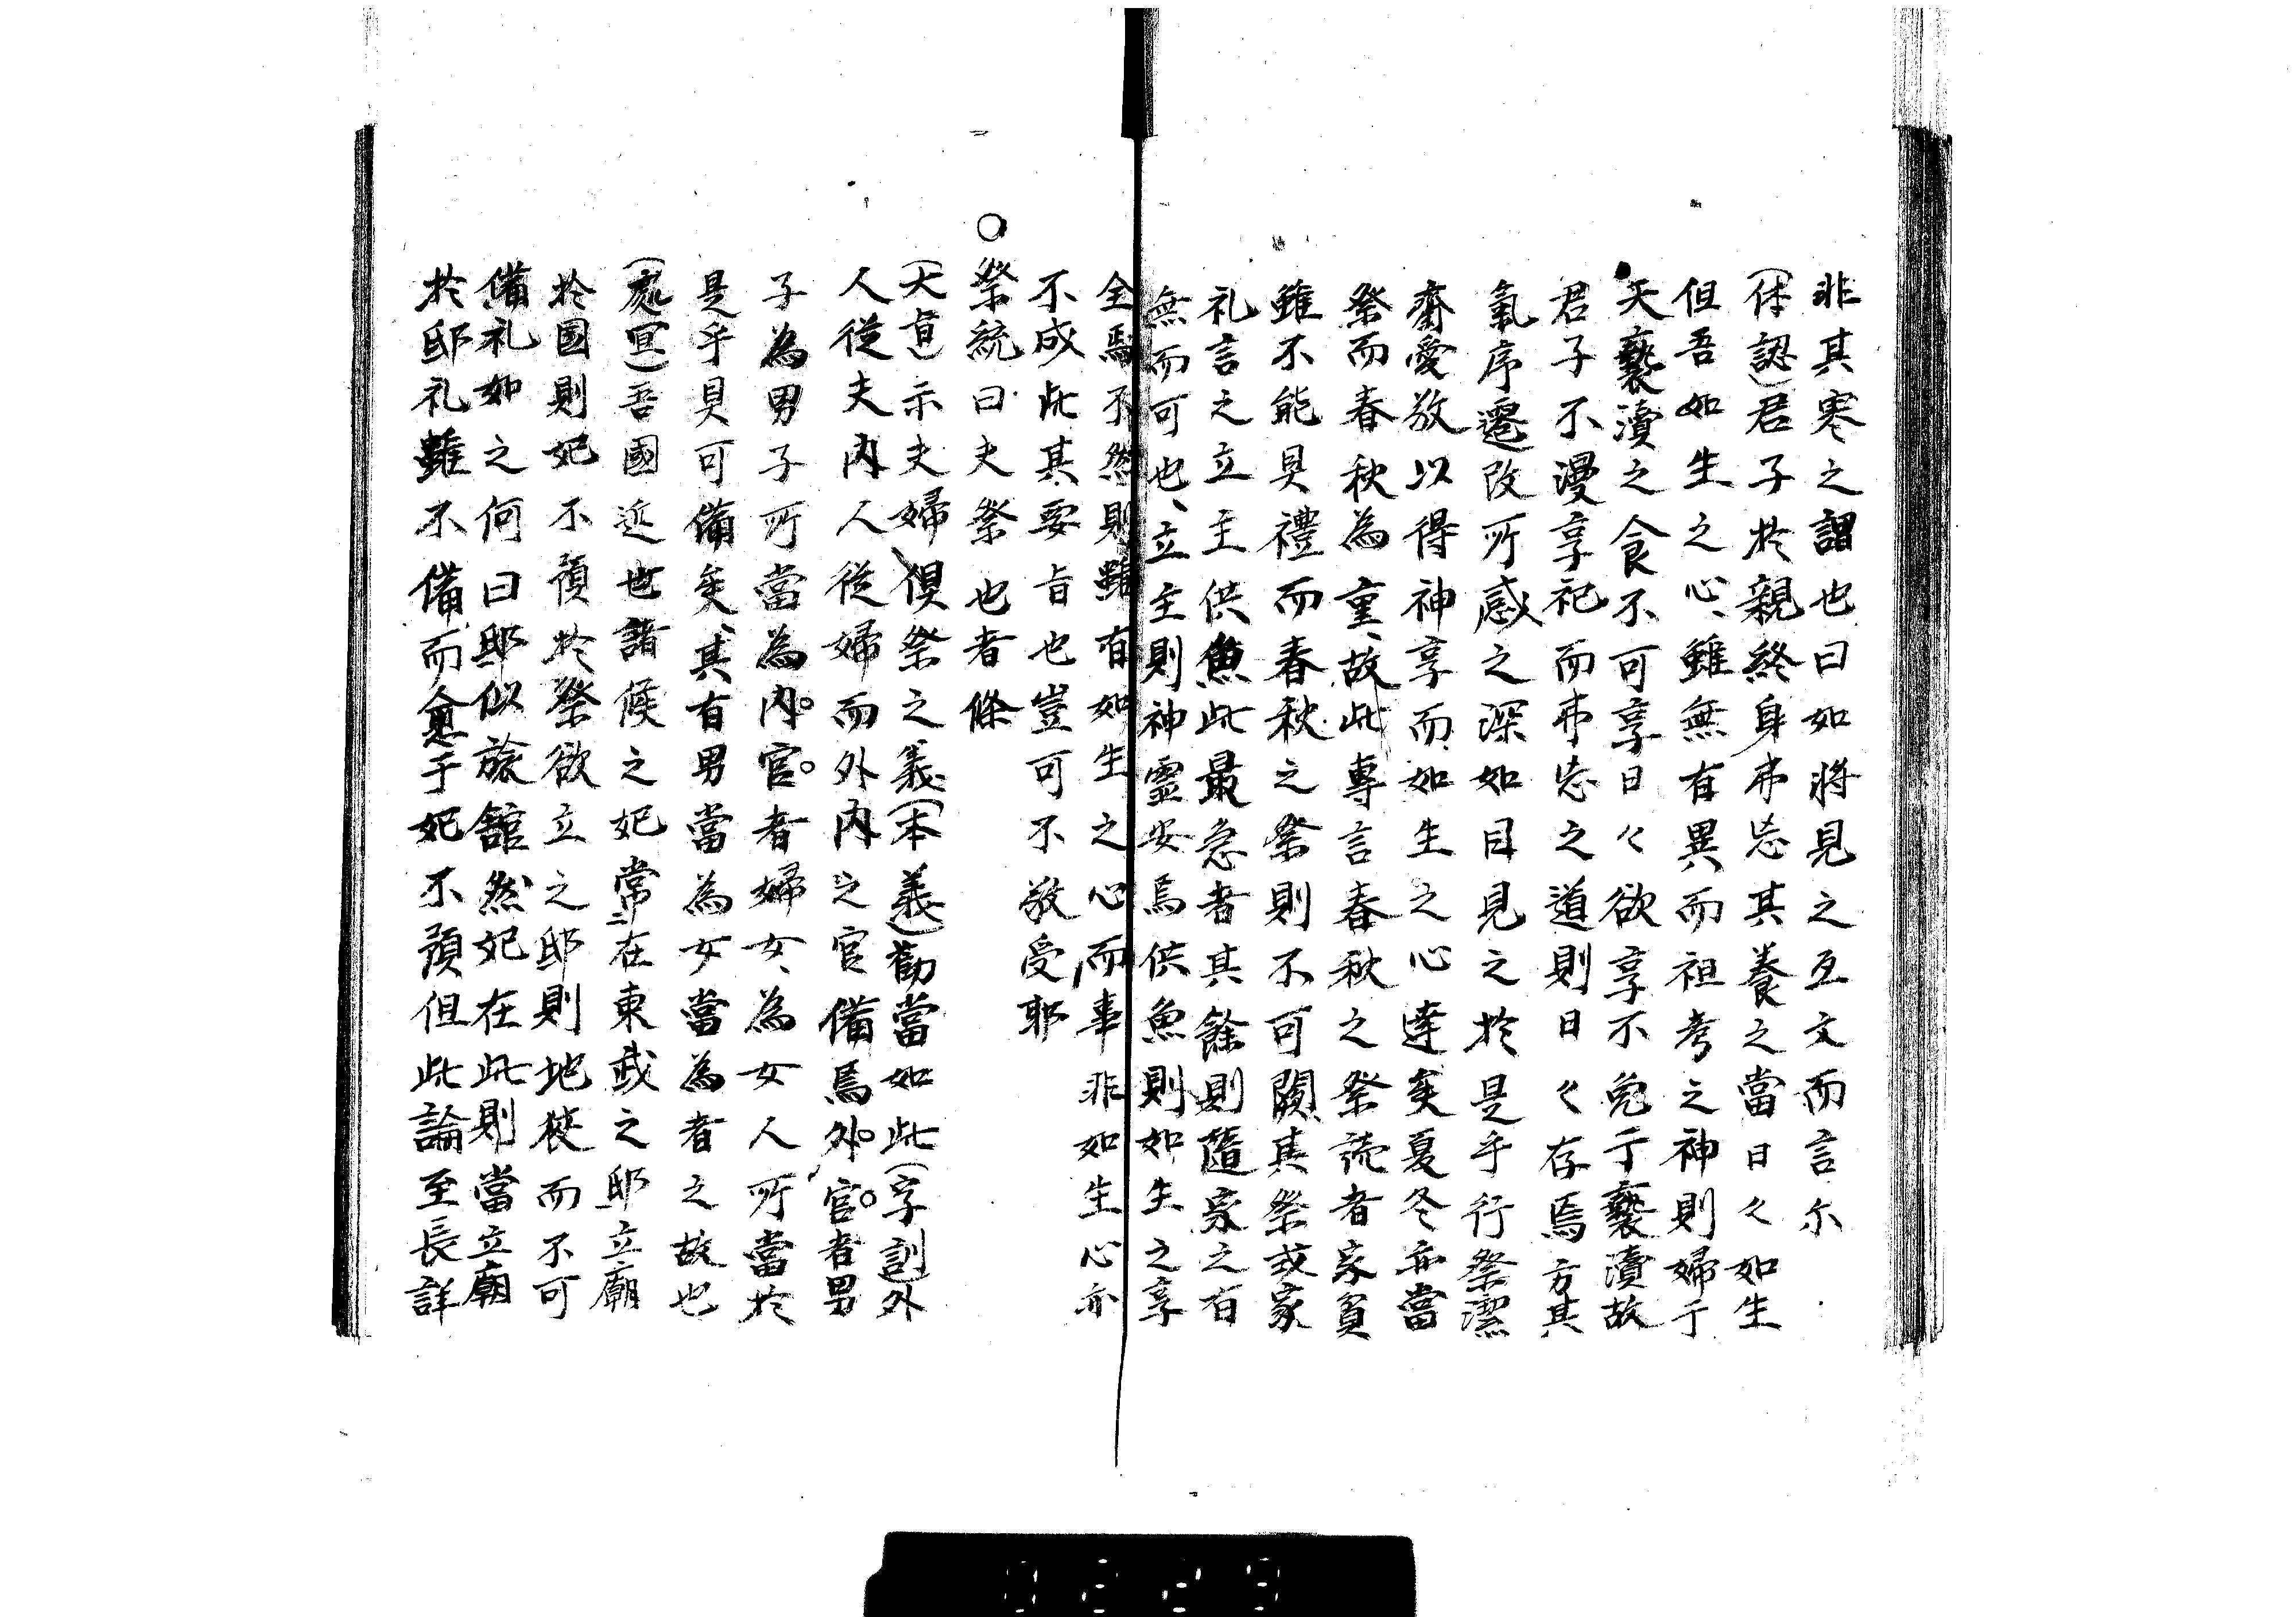 非其寒之謂也曰如將見之互文而言尓
(体認)君子於親終身弗忘其養之當日々如生
但吾如生之心、雖無有異而祖考之神則婦于
天褻瀆之食不可享日々欲享不免于褻瀆故
君子不漫享祀而弗忘之道則日々存焉方其
氣序遷改所感之深如目見之於是乎行祭潔
齋愛敬以得神享而如生之心達矣夏冬亦當
祭而春秋為重、故此專言春秋之祭読者家貧
雖不能具禮而春秋之祭則不可闕其祭或家
礼言之立主供魚此最急者其餘則随家之有
無而可也、立主則神霊安焉供魚則如生之享
全焉不然則雖有如生之心而事非如生心亦
不成此其要旨也豈可不敬受耶
○祭統曰夫祭也者條
(大旨)示夫婦俱祭之義(本義)勸當如此(字訓)外
人從夫内人從婦而外内之官備焉外官者男
子為男子所當為内官者婦女、為女人所當於
是乎具可備矣、其有男當為女當為者之故也
(處冝)吾國近世諸侯之妃常在東武之邸立廟
於國則妃不預於祭欲立之邸則地狹而不可
備礼如之何曰邸似旅舘然妃在此則當立廟
於邸礼雖不備而愈于妃不預但此論至長詳